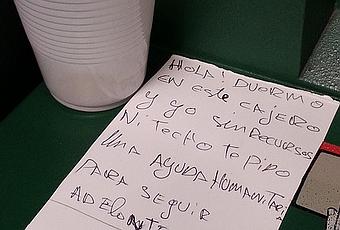 HOLA! DUORMO
EN este CAJERO
Y yo SIN RECURSOS
Ni Techo te PiDO
UNA AYUDA HUMANITARIA
PARA SEGUIR
ADELANTE